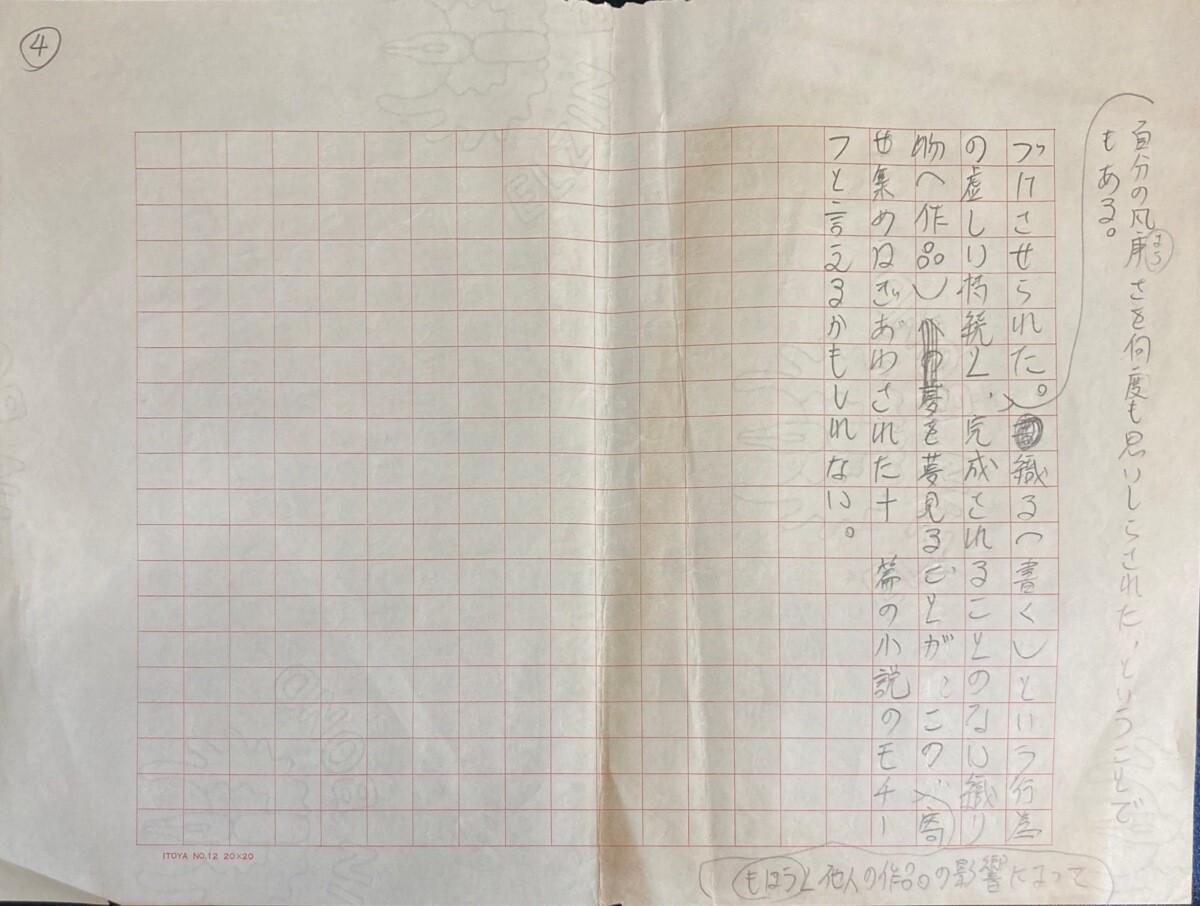 ④
自分の凡庸さを何度も思いしらされた、ということで
もある。
づけさせられた。織る（書く）という行為
の虚しい持続と、完成されることのない織り
物（作品）の夢を夢見ることが、この寄
せ集めはぎあわされた十 篇の小説のモチー
フと言えるかもしれない。
もほうと他人の作品の影響によって
ITOYA NO.12 20×20